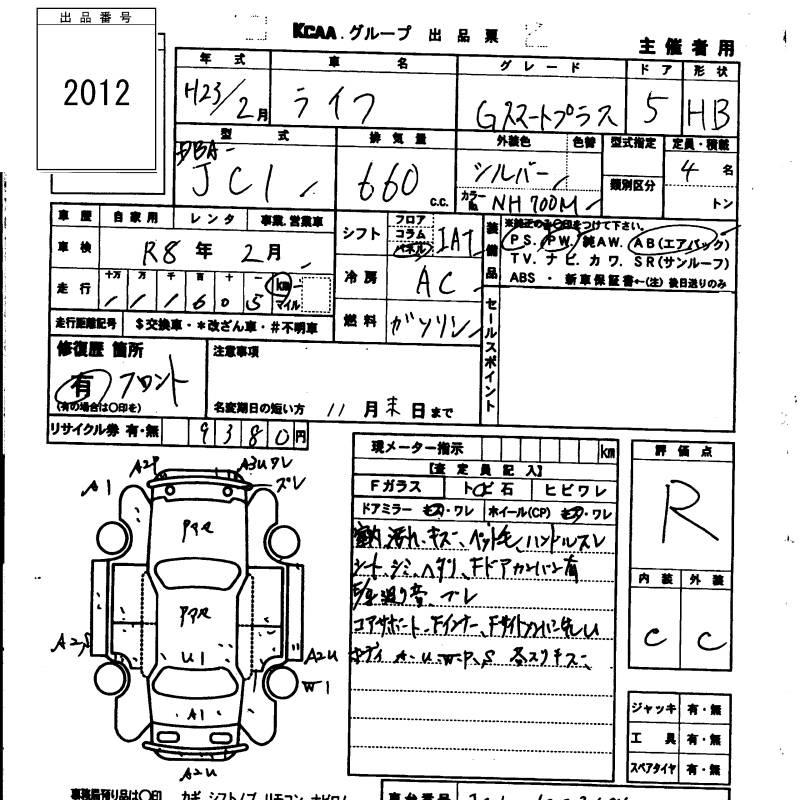 出品番号
2012
KCAA.グループ 出品票
主催者用
年式 車名 グレード ドア 形状
H23/2月 ライフ Gスマートプラス 5 HB
型式 排気量 外装色 色替 型式指定 定員・積載
DBA-
JC1 660 c.c. シルバー 4名
カラーNo. NH700M 類別区分 トン
車歴 自家用 レンタ 事業.営業車
車検 R8年2月
走行 十万 万 千 百 十 一 km マイル
/ / / 6 0 5
走行距離記号 $交換車・*改ざん車・#不明車
シフト フロア コラム パネル IAT
冷房 AC
燃料 ガソリン
装備品 ※純正のみ○印をつけて下さい。
PS. PW. 純AW. AB(エアバック)
TV. ナビ. カワ. SR(サンルーフ)
ABS・新車保証書←(注)後日送りのみ
セールスポイント
修復歴 箇所
有 フロント
(有の場合は○印を)
注意事項
名変期日の短い方 11月末日まで
リサイクル券 有・無 9380円
現メーター指示 km
【査定員記入】
Fガラス トビ石 ヒビワレ
ドアミラー キズ・ワレ ホイール(CP) キズ・ワレ
室内汚れ、キズ、ペット毛、ハンドルスレ
シート、シミ、ヘタリ、Fドアカンバン有
ブレ
コアサポート、Fインナー、
ボディ A.U.W.P.S 各スリキズ
評価点
R
内装 外装
C C
ジャッキ 有・無
工具 有・無
スペアタイヤ 有・無
A2P A3Uワレ
A1 ズレ
U1
A2,S A2U
W1
A1
A2U
事務局預り品は○印 カギ シフトノブ リモコン ナビロム
車台番号